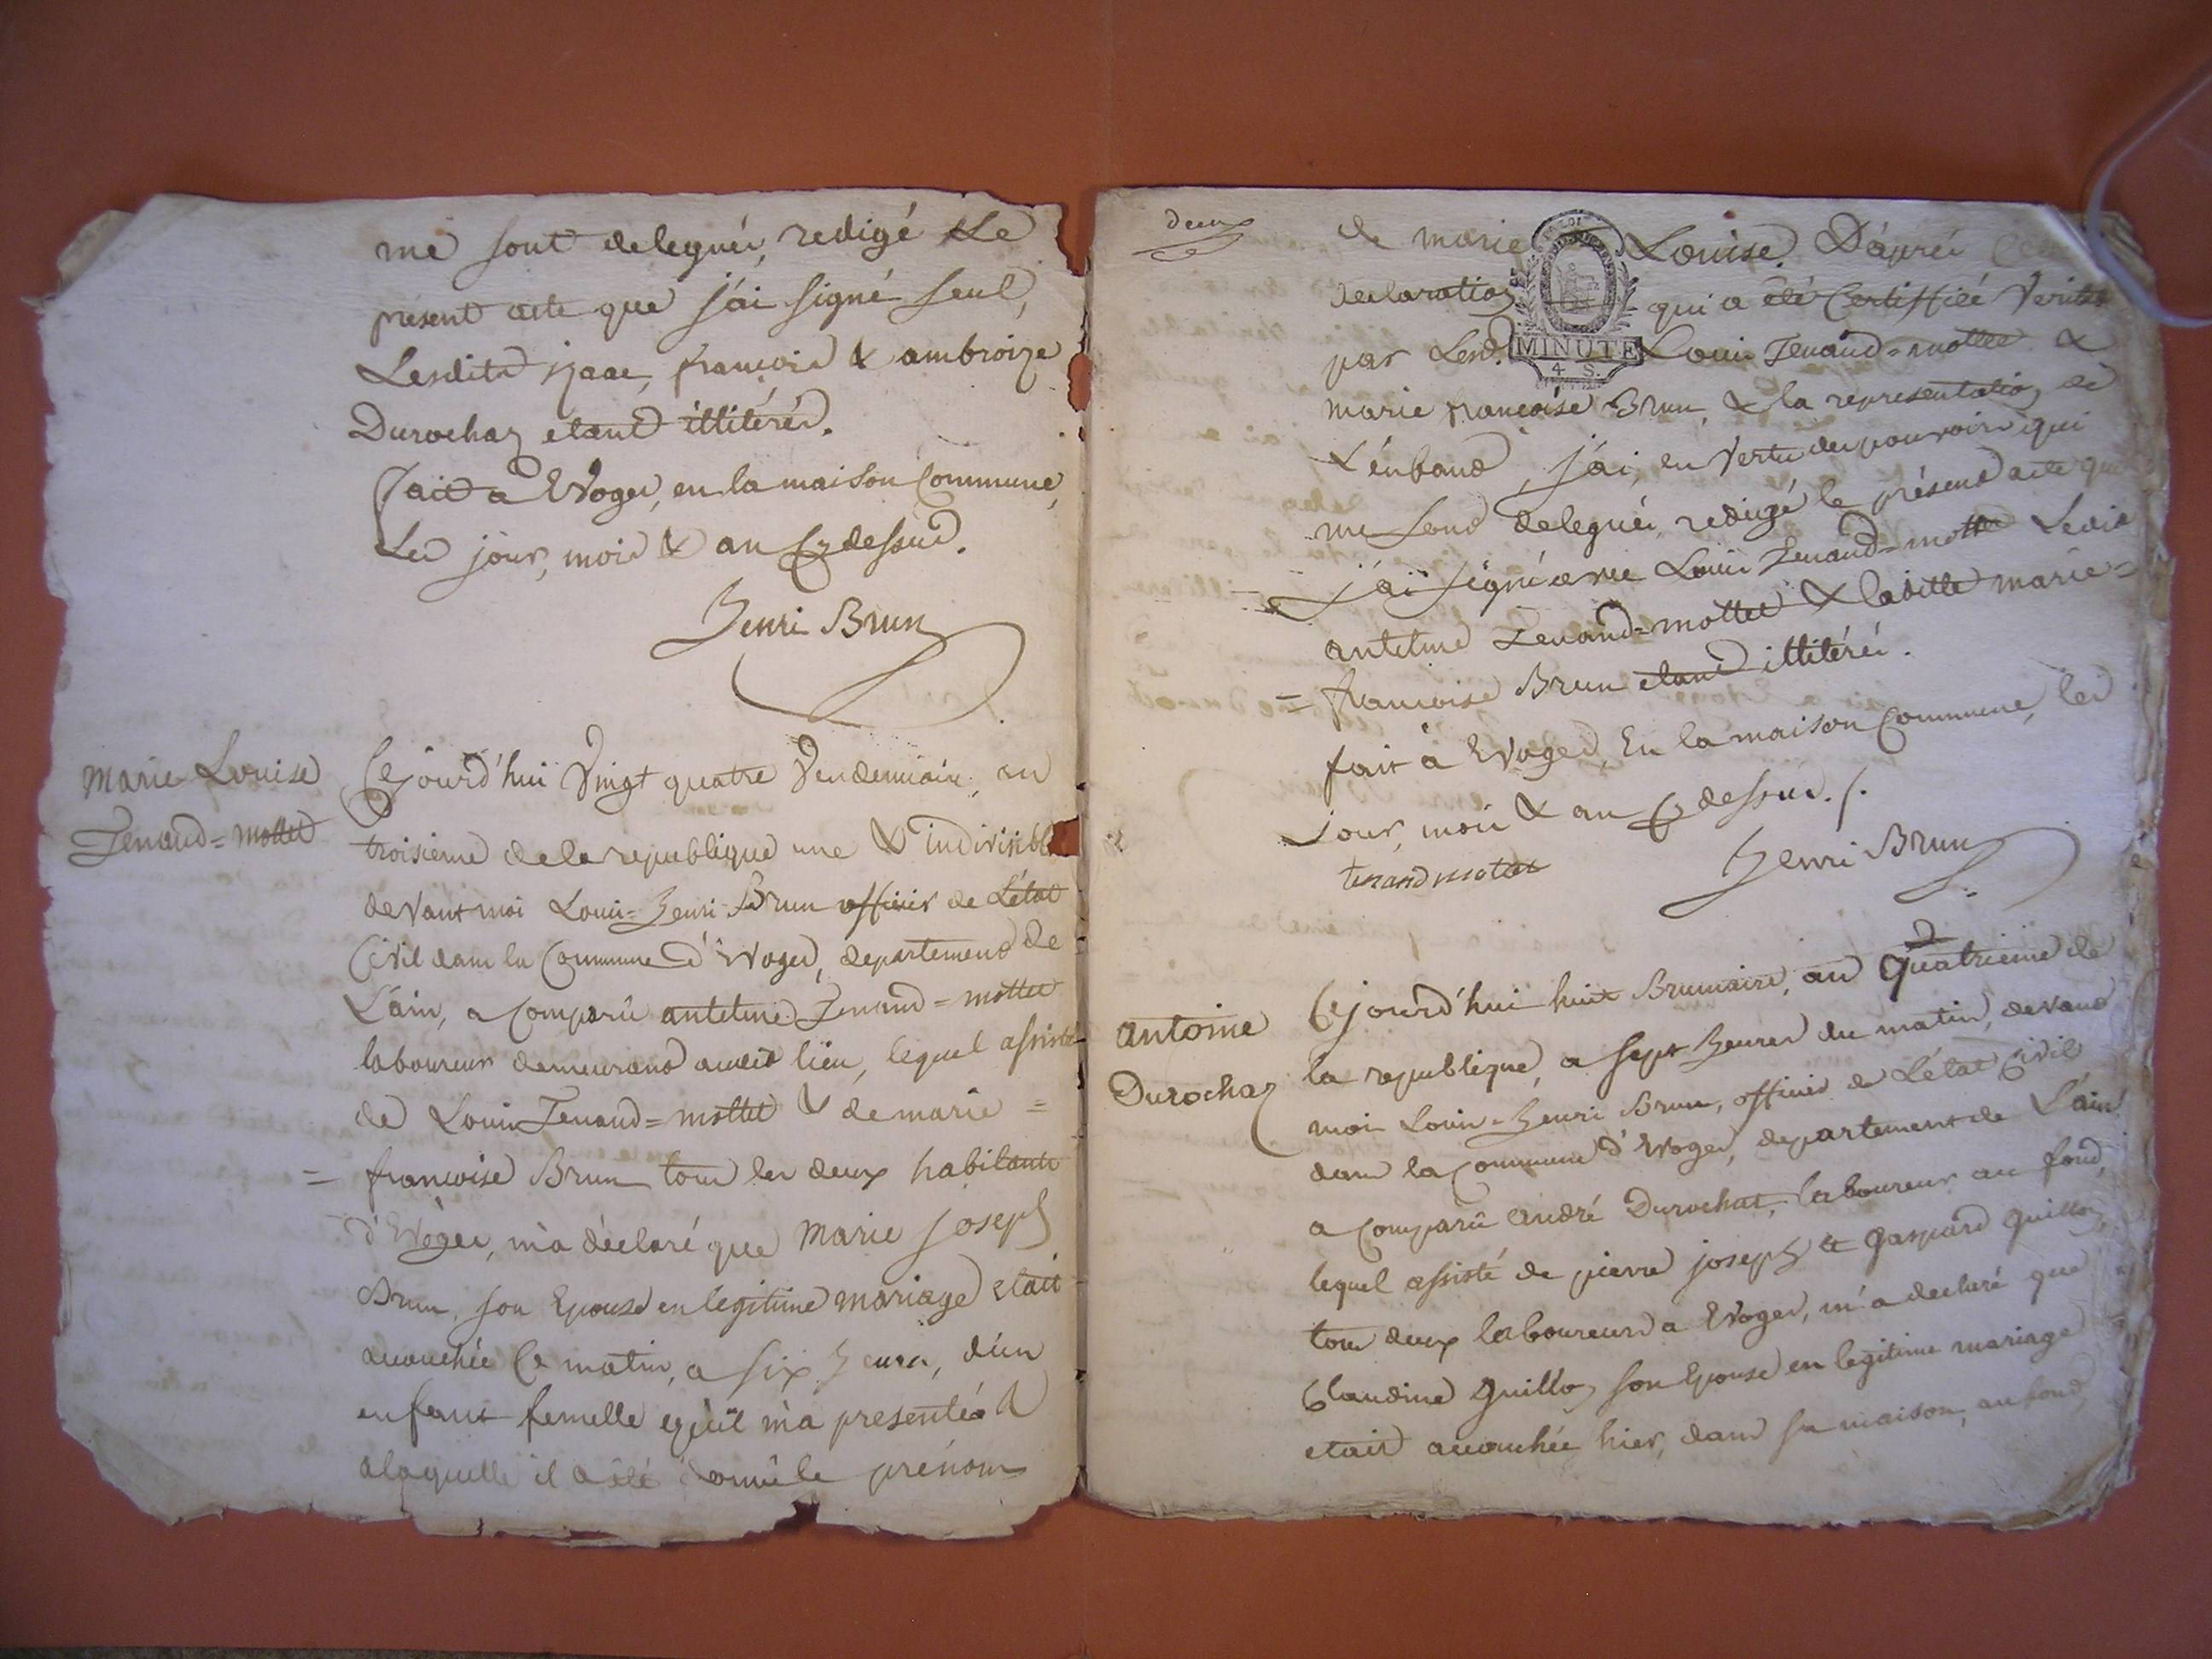 me sont delegués, redigé Le
présent acte que j'ai signé seul,
Lesdits izaac, françois & ambroize
Durochaz etant illitérés.
Fait a Evoges, en la maison Commune,
Les jour, mois & an Cy dessus.
henri Brun
Marie Louise
Tenand=mottet
Cejourd'hui Vingt quatre Vendemiaire, an
troisieme de la republique une & indivisible
devant moi Louis=henri Brun officier de L'état
Civil dans la Commune d'Evoges, departement de
L'ain, a Comparû antelme Tenand=mottet
laboureur demeurand audit lieu, lequel assisté
de Louis Tenand=mottet & de marie=
=françoise Brun tous les deux habitants
d'Evoges, m'a déclaré que Marie joseph
Brun, son Epouse en legitime mariage etait
acouchée Ce matin, a six heures, d'un
enfant femelle qu'il m'a presenté &
a laquelle il a été donné le prénom
deux
de marie Louise. D'après
declaration qui a été Certiffiée Veritable
par Lesd. Louis Tenand=mottet &
marie françoise Brun, & la representation de
L'enfand, j'ai, en Vertu des pouvoirs qui
me sond delegués, redigé le présend acte que
j'ai signé avec Louis Tenand=mottet Ledit
antelme Tenand=mottet & laditte marie=
=françoise Brun etand illitérés.
fait à Evoges, En la maison Commune, les
jour, mois & an Cy dessus./.
tenandmottet
henri Brun
MINUTE
4 S.
antoine
Durochaz
Cejourd'hui huit Brumaire, an Quatrieme de
la republique, a sept heures du matin, devand
moi Louis=henri Brun, officier de L'état Civil
dans la Commune d'Evoges, departement de L'ain
a Comparû André Durochat, laboureur au fond,
lequel assisté de pierre joseph & gaspard guilloz
tous deux laboureurs a Evoges, m'a declaré que
Claudine guilloz son Epouse en legitime mariage
etait acouchée hier, dans sa maison, au fond,